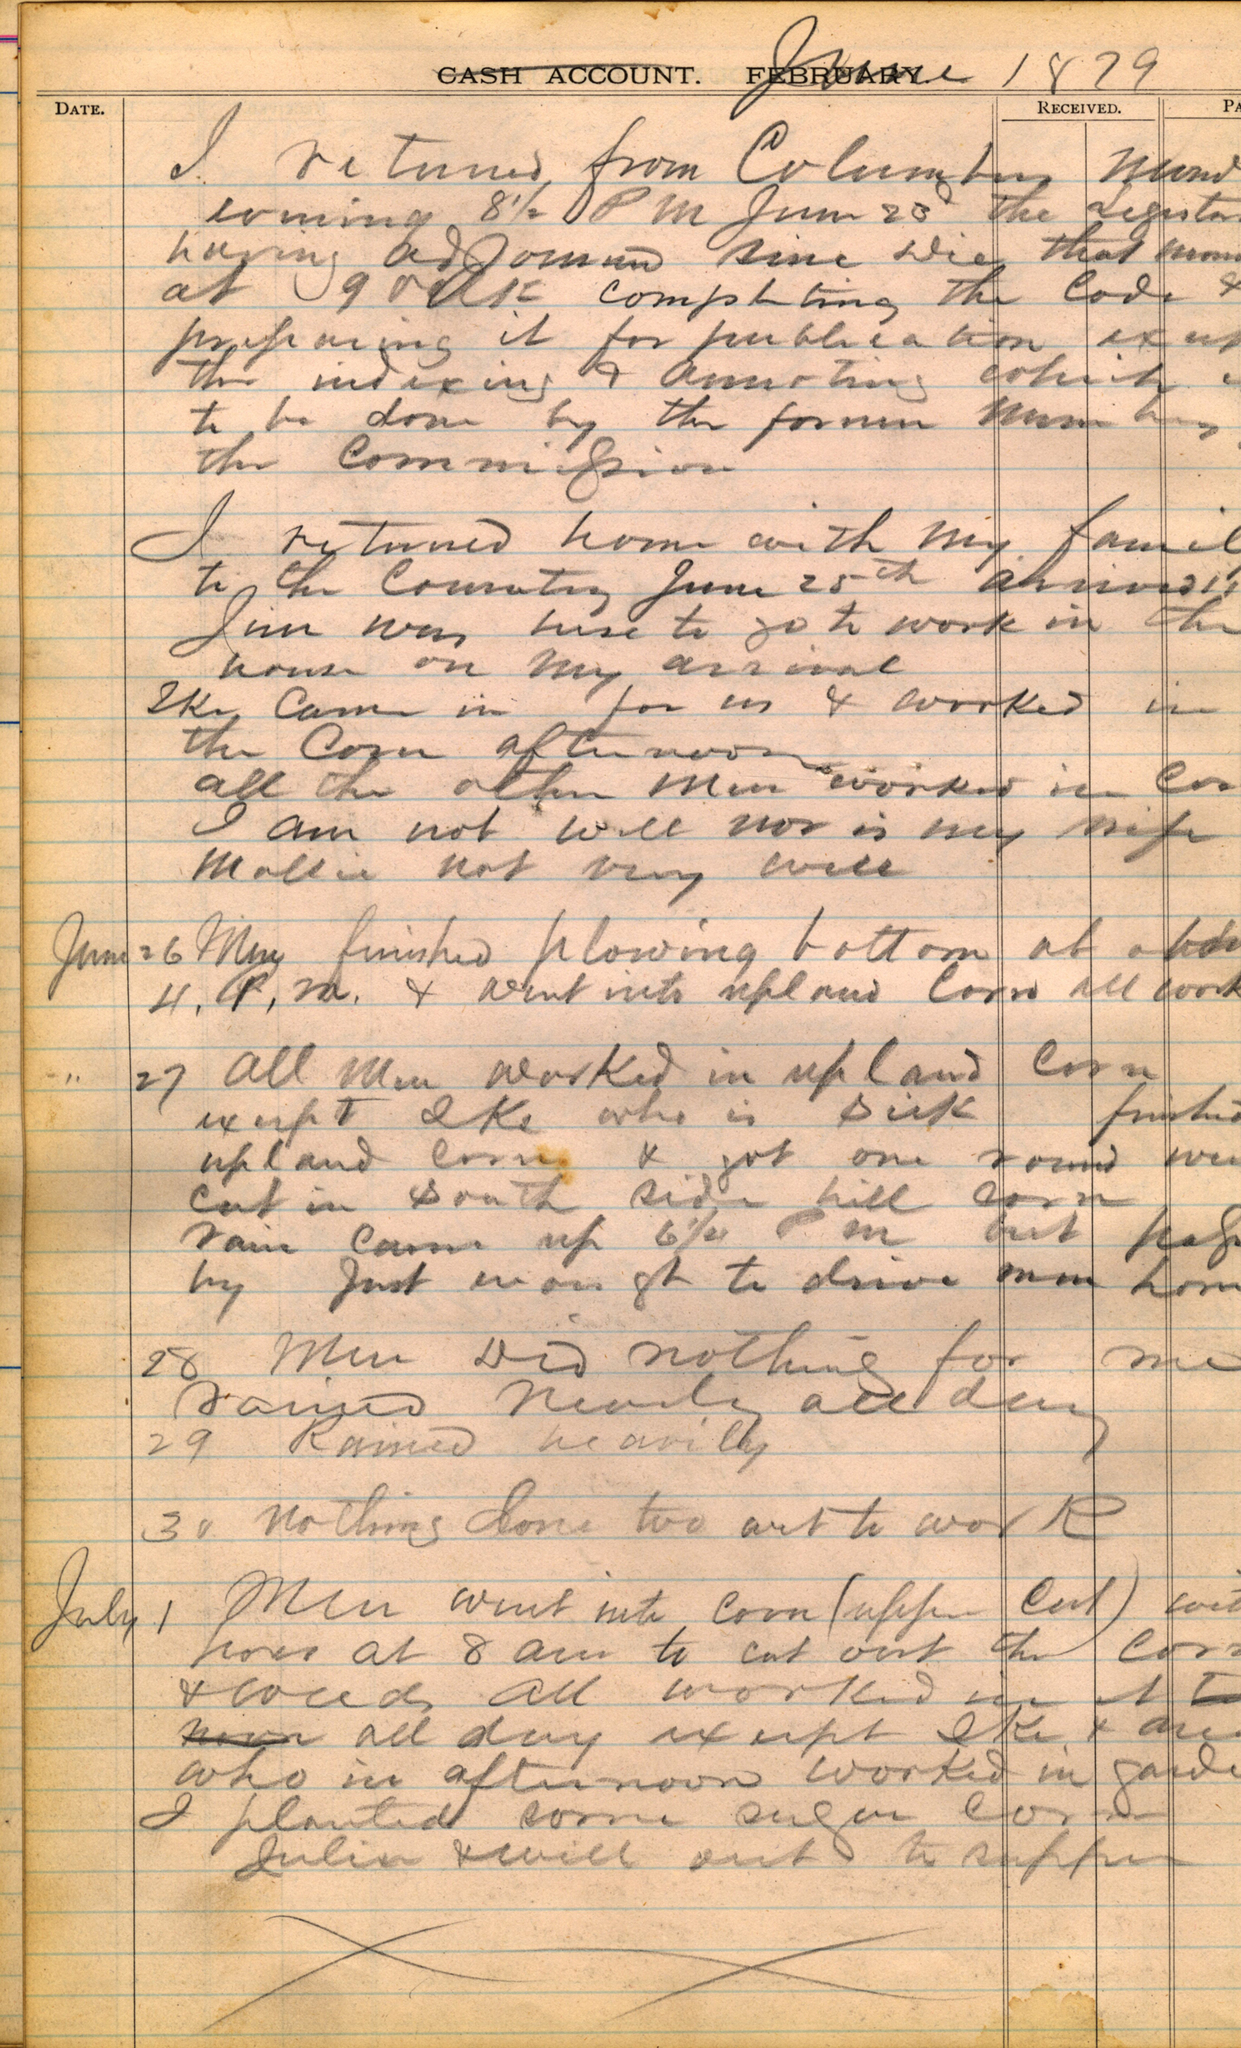 CASH ACCOUNT. FEBRUARY. June 1879
DATE. RECEIVED. PA
I returned from Columbus Mond
evening 8½ P M June 23d the Legislat
having adjourned sine die that morn
at 9 oclk completing the Code &
preparing it for publication except
the indexing & annoting which is
to be done by the former Members
the Commission
I returned home with my famil
to the Country June 25th arrived 11
Jim was here to go to work in the
house on my arrival
Ike came in for us & worked in
the Corn afternoon
all the other men worked in Cor
I am not well nor is my wife
Mollie not very well
June 26 Men finished plowing bottom at abou
4. P. M. & went into upland Corn all work
" 27 All men worked in upland Corn
except Ike who is sick finished
upland corn & got one round wee
cut in South side hill corn
rain came up 6¼ P M but pass
by just enough to drive men hom
28 Men did nothing for me
rained nearly all day
29 Rained heavily
30 Nothing done two wet to work
July 1 Men went into corn (upper Cut) wit
hoes at 8 am to cut out the Corn
& weeds All worked in it to
noon all day except Ike &
who in afternoon worked in garde
I planted some sugar Corn
Julia & Will out to supper